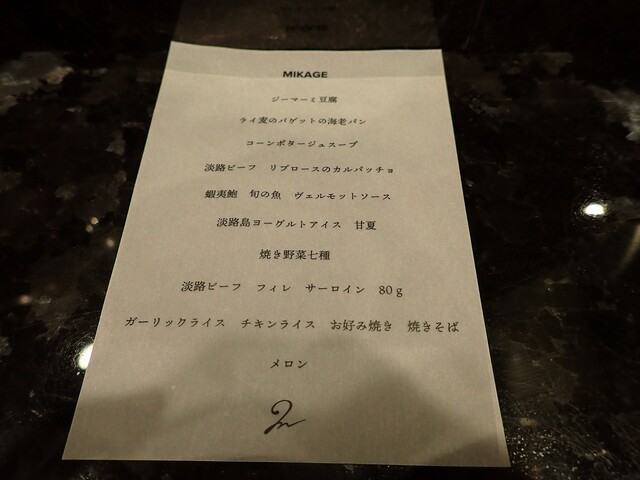 MIKAGE
ジーマーミ豆腐
ライ麦のバゲットの海老パン
コーンポタージュスープ
淡路ビーフ　リブロースのカルパッチョ
蝦夷鮑　旬の魚　ヴェルモットソース
淡路島ヨーグルトアイス　甘夏
焼き野菜七種
淡路ビーフ　フィレ　サーロイン　80g
ガーリックライス　チキンライス　お好み焼き　焼きそば
メロン